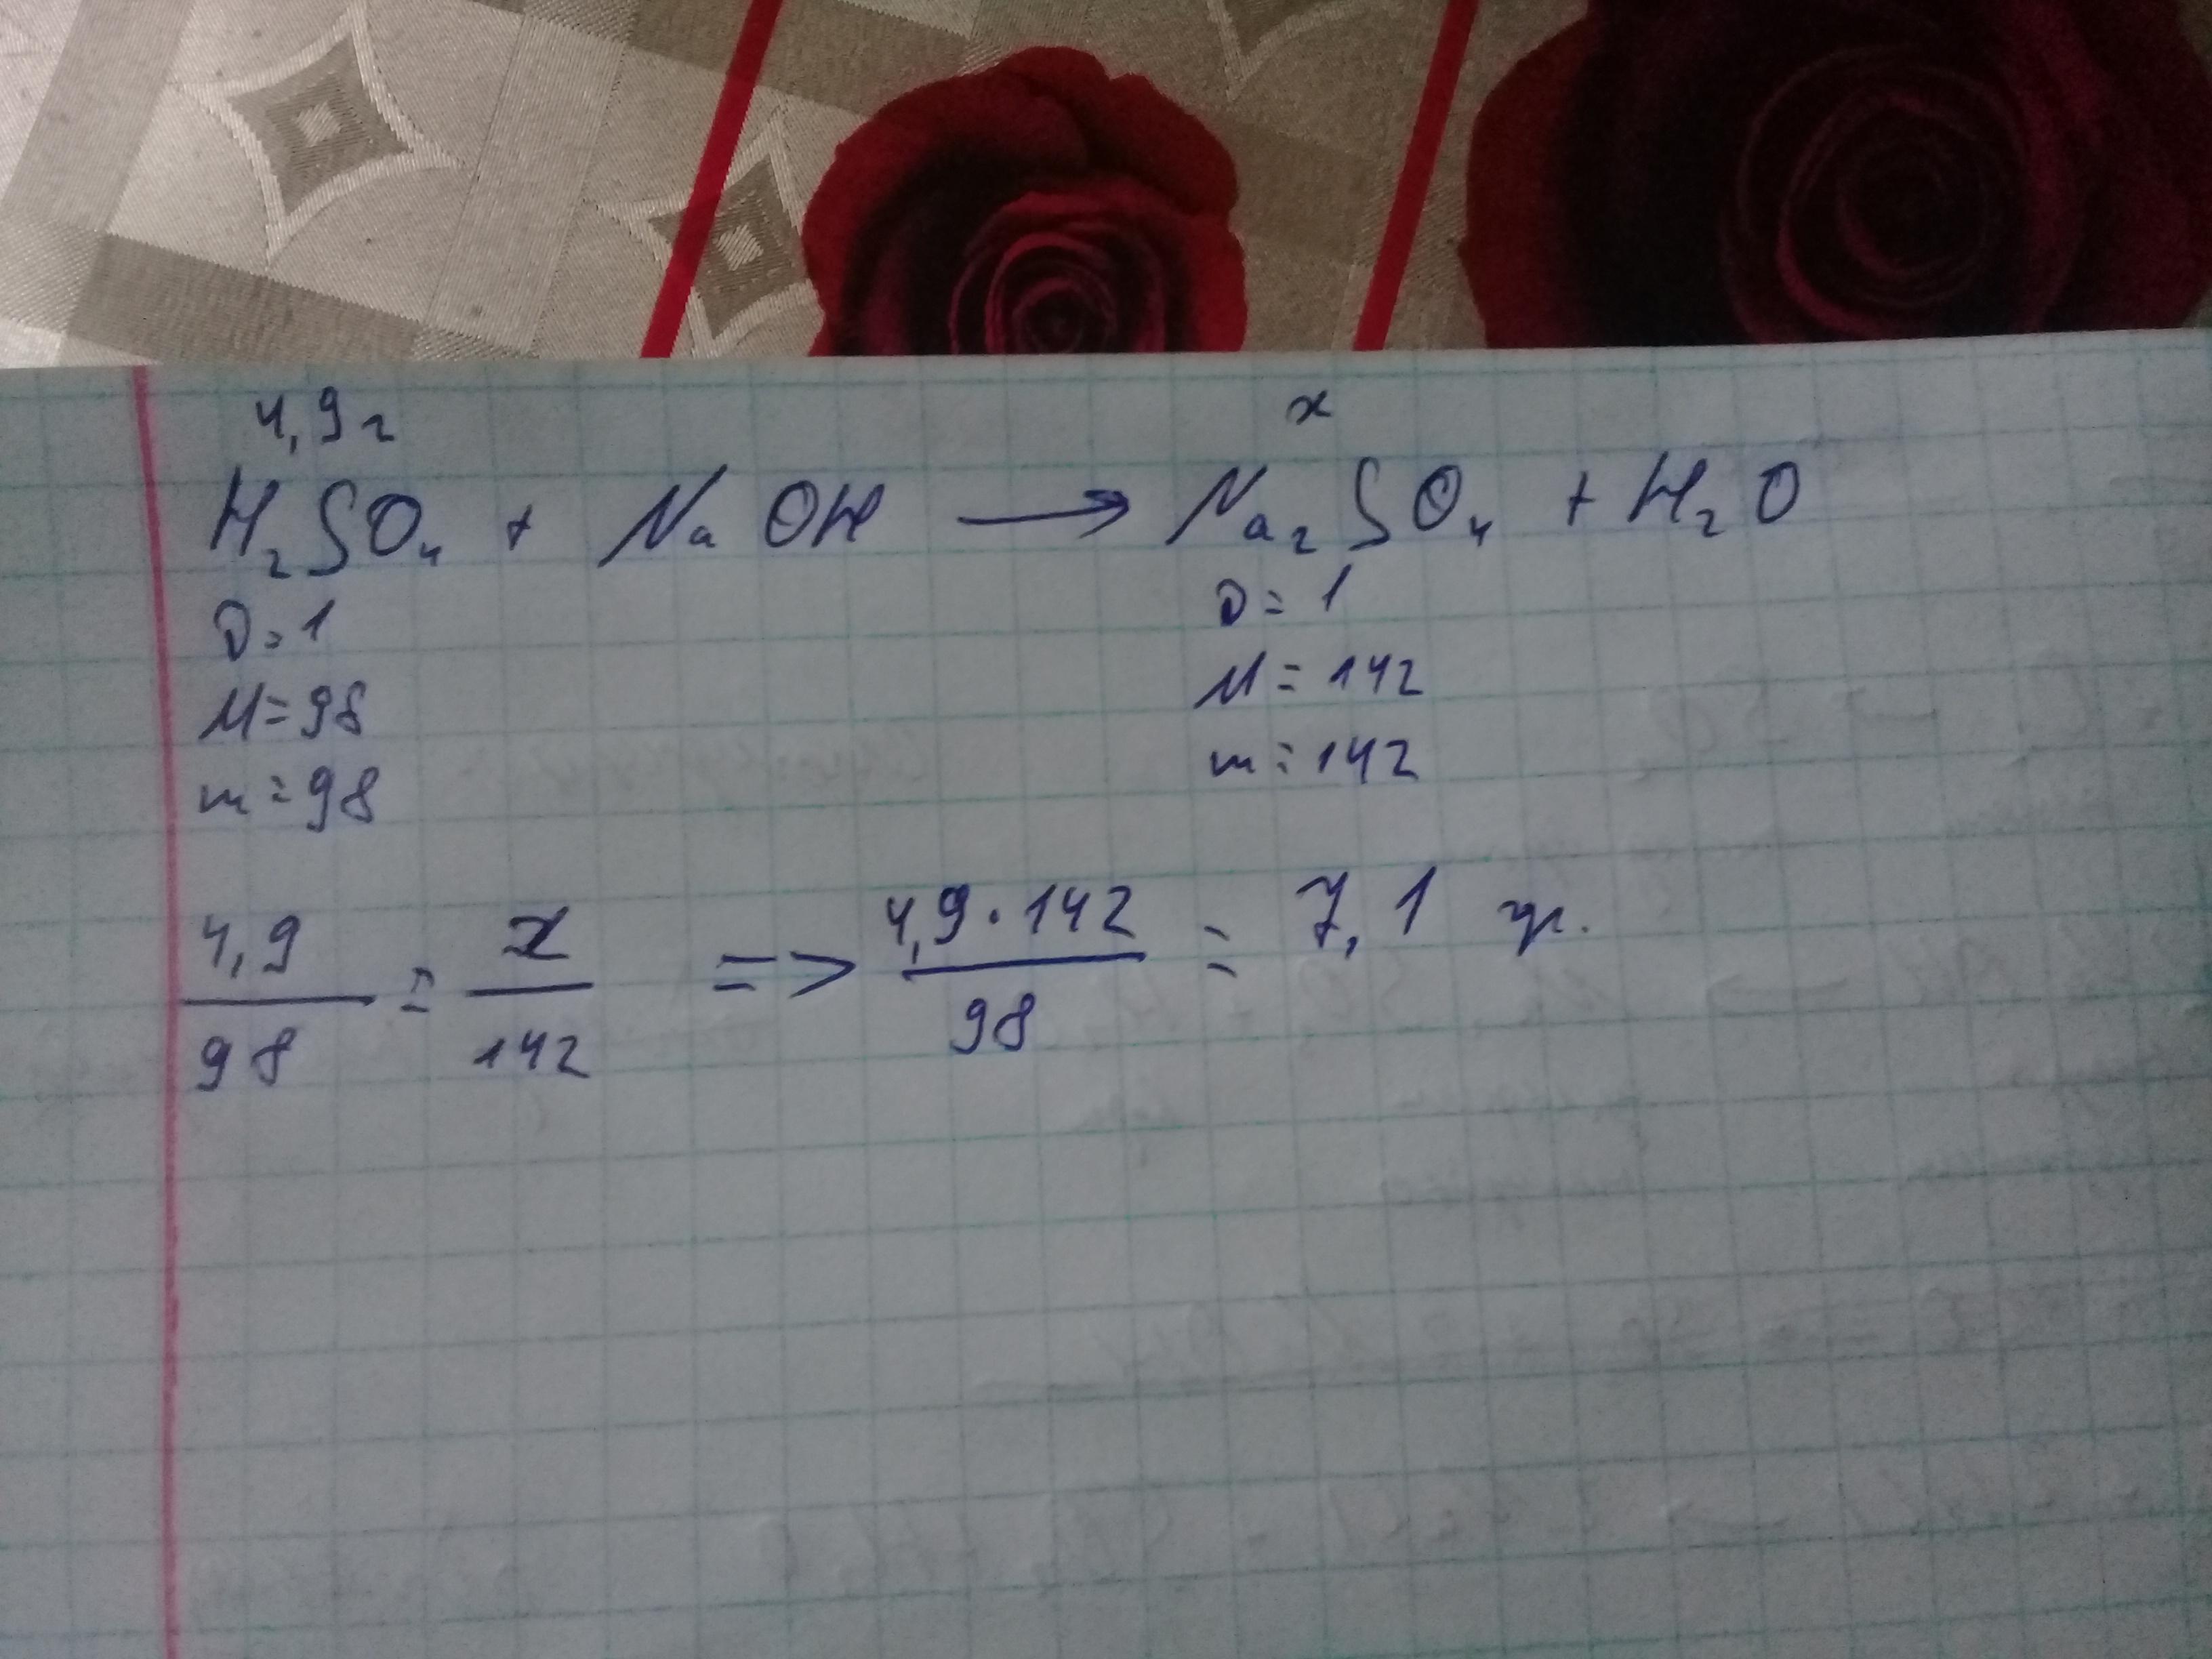 4,9г x
H₂SO₄ + NaOH → Na₂SO₄ + H₂O
ν=1 ν=1
M=98 M=142
m=98 m=142
4,9/98 = x/142 => 4,9·142/98 = 7,1 гр.